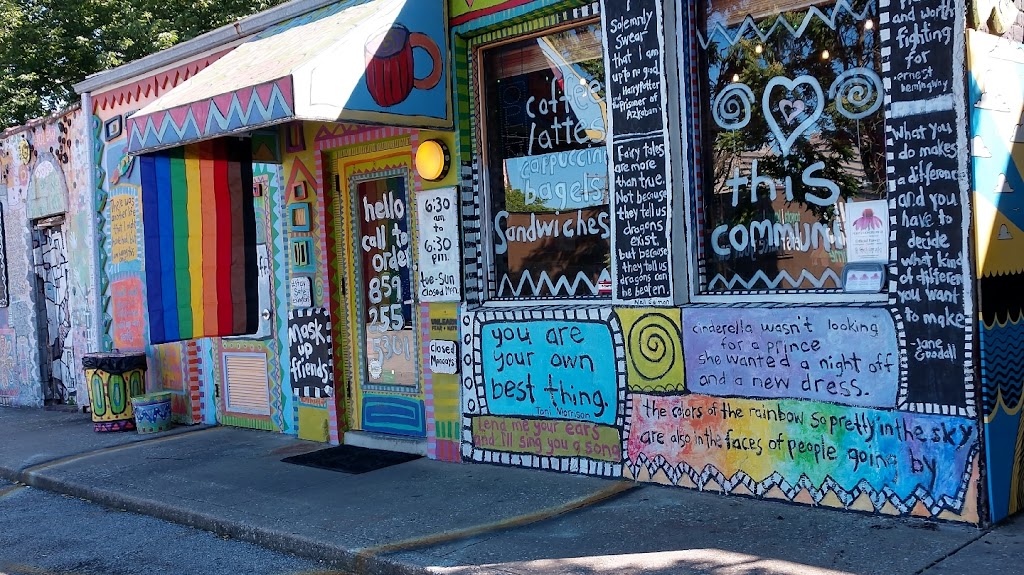 hello
call to
order
859
255
6:30
am
to
6:30
pm.
Tue-Sun
closed mon
closed
Mondays
mask
up
friends
coffee
lattes
cappuccino
bagels
Sandwiches
I
Solemnly
Swear
that I am
up to no good.
- Harry Potter
the Prisoner of
Azkaban
Fairy tales
are more
than true.
Not because
they tell us
dragons
exist,
but because
they tell us
dragons can
be beaten.
Neil Gaiman
this
communi
and worth
fighting
for
-ernest
hemingway
What you
do makes
a difference
and you
have to
decide
what kind
of difference
you want
to make
-Jane
Goodall
you are
your own
best thing.
Toni Morrison
Lend me your ears
and I'll sing you a song
cinderella wasn't looking
for a prince
she wanted a night off
and a new dress.
the colors of the rainbow so pretty in the sky
are also in the faces of people going by